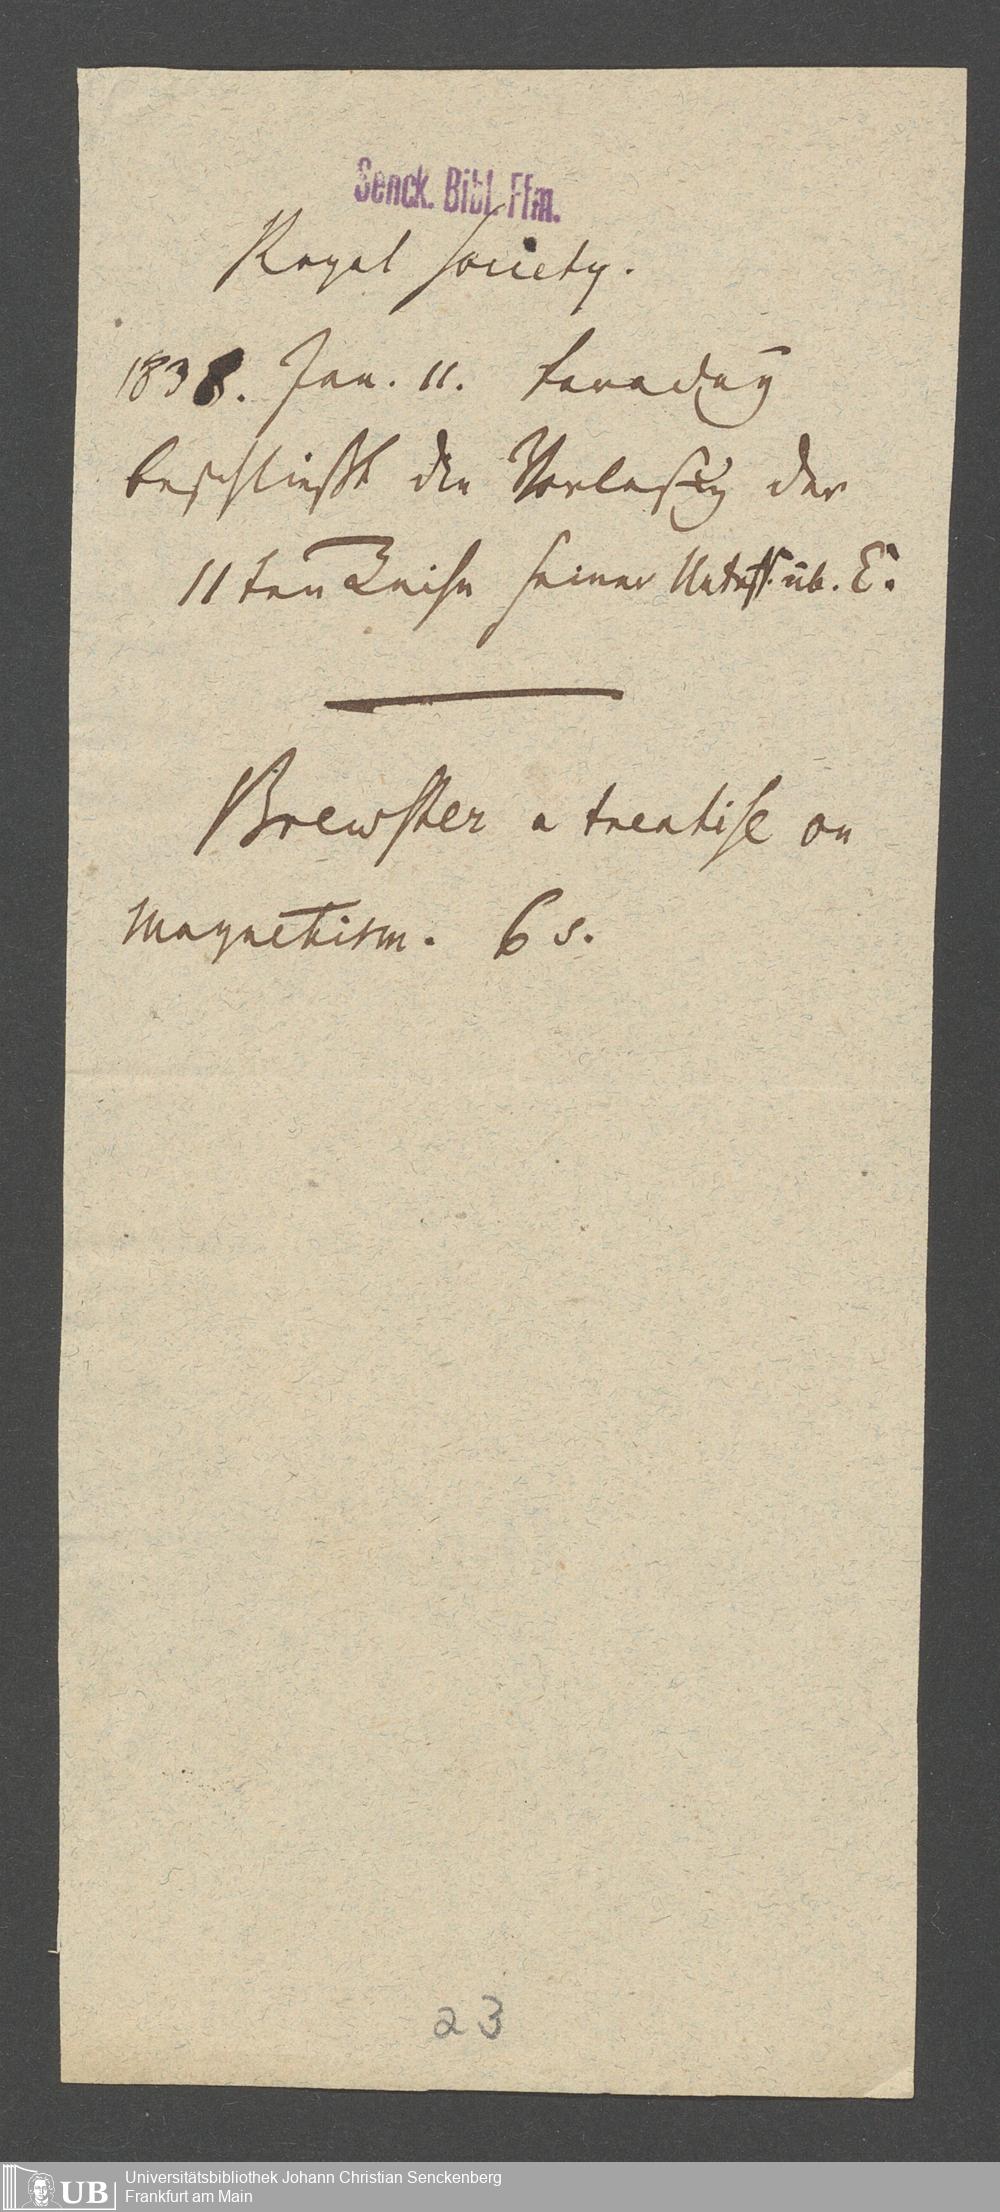 Senck. Bibl. Ffm.
Royal Society.
1838. Jan. 11. Faraday
beschließt die Vorlesung der
11ten Reihe seiner Unters. üb. E.
Brewster a treatise on
Magnetism. 6 s.
23
UB Universitätsbibliothek Johann Christian Senckenberg
Frankfurt am Main